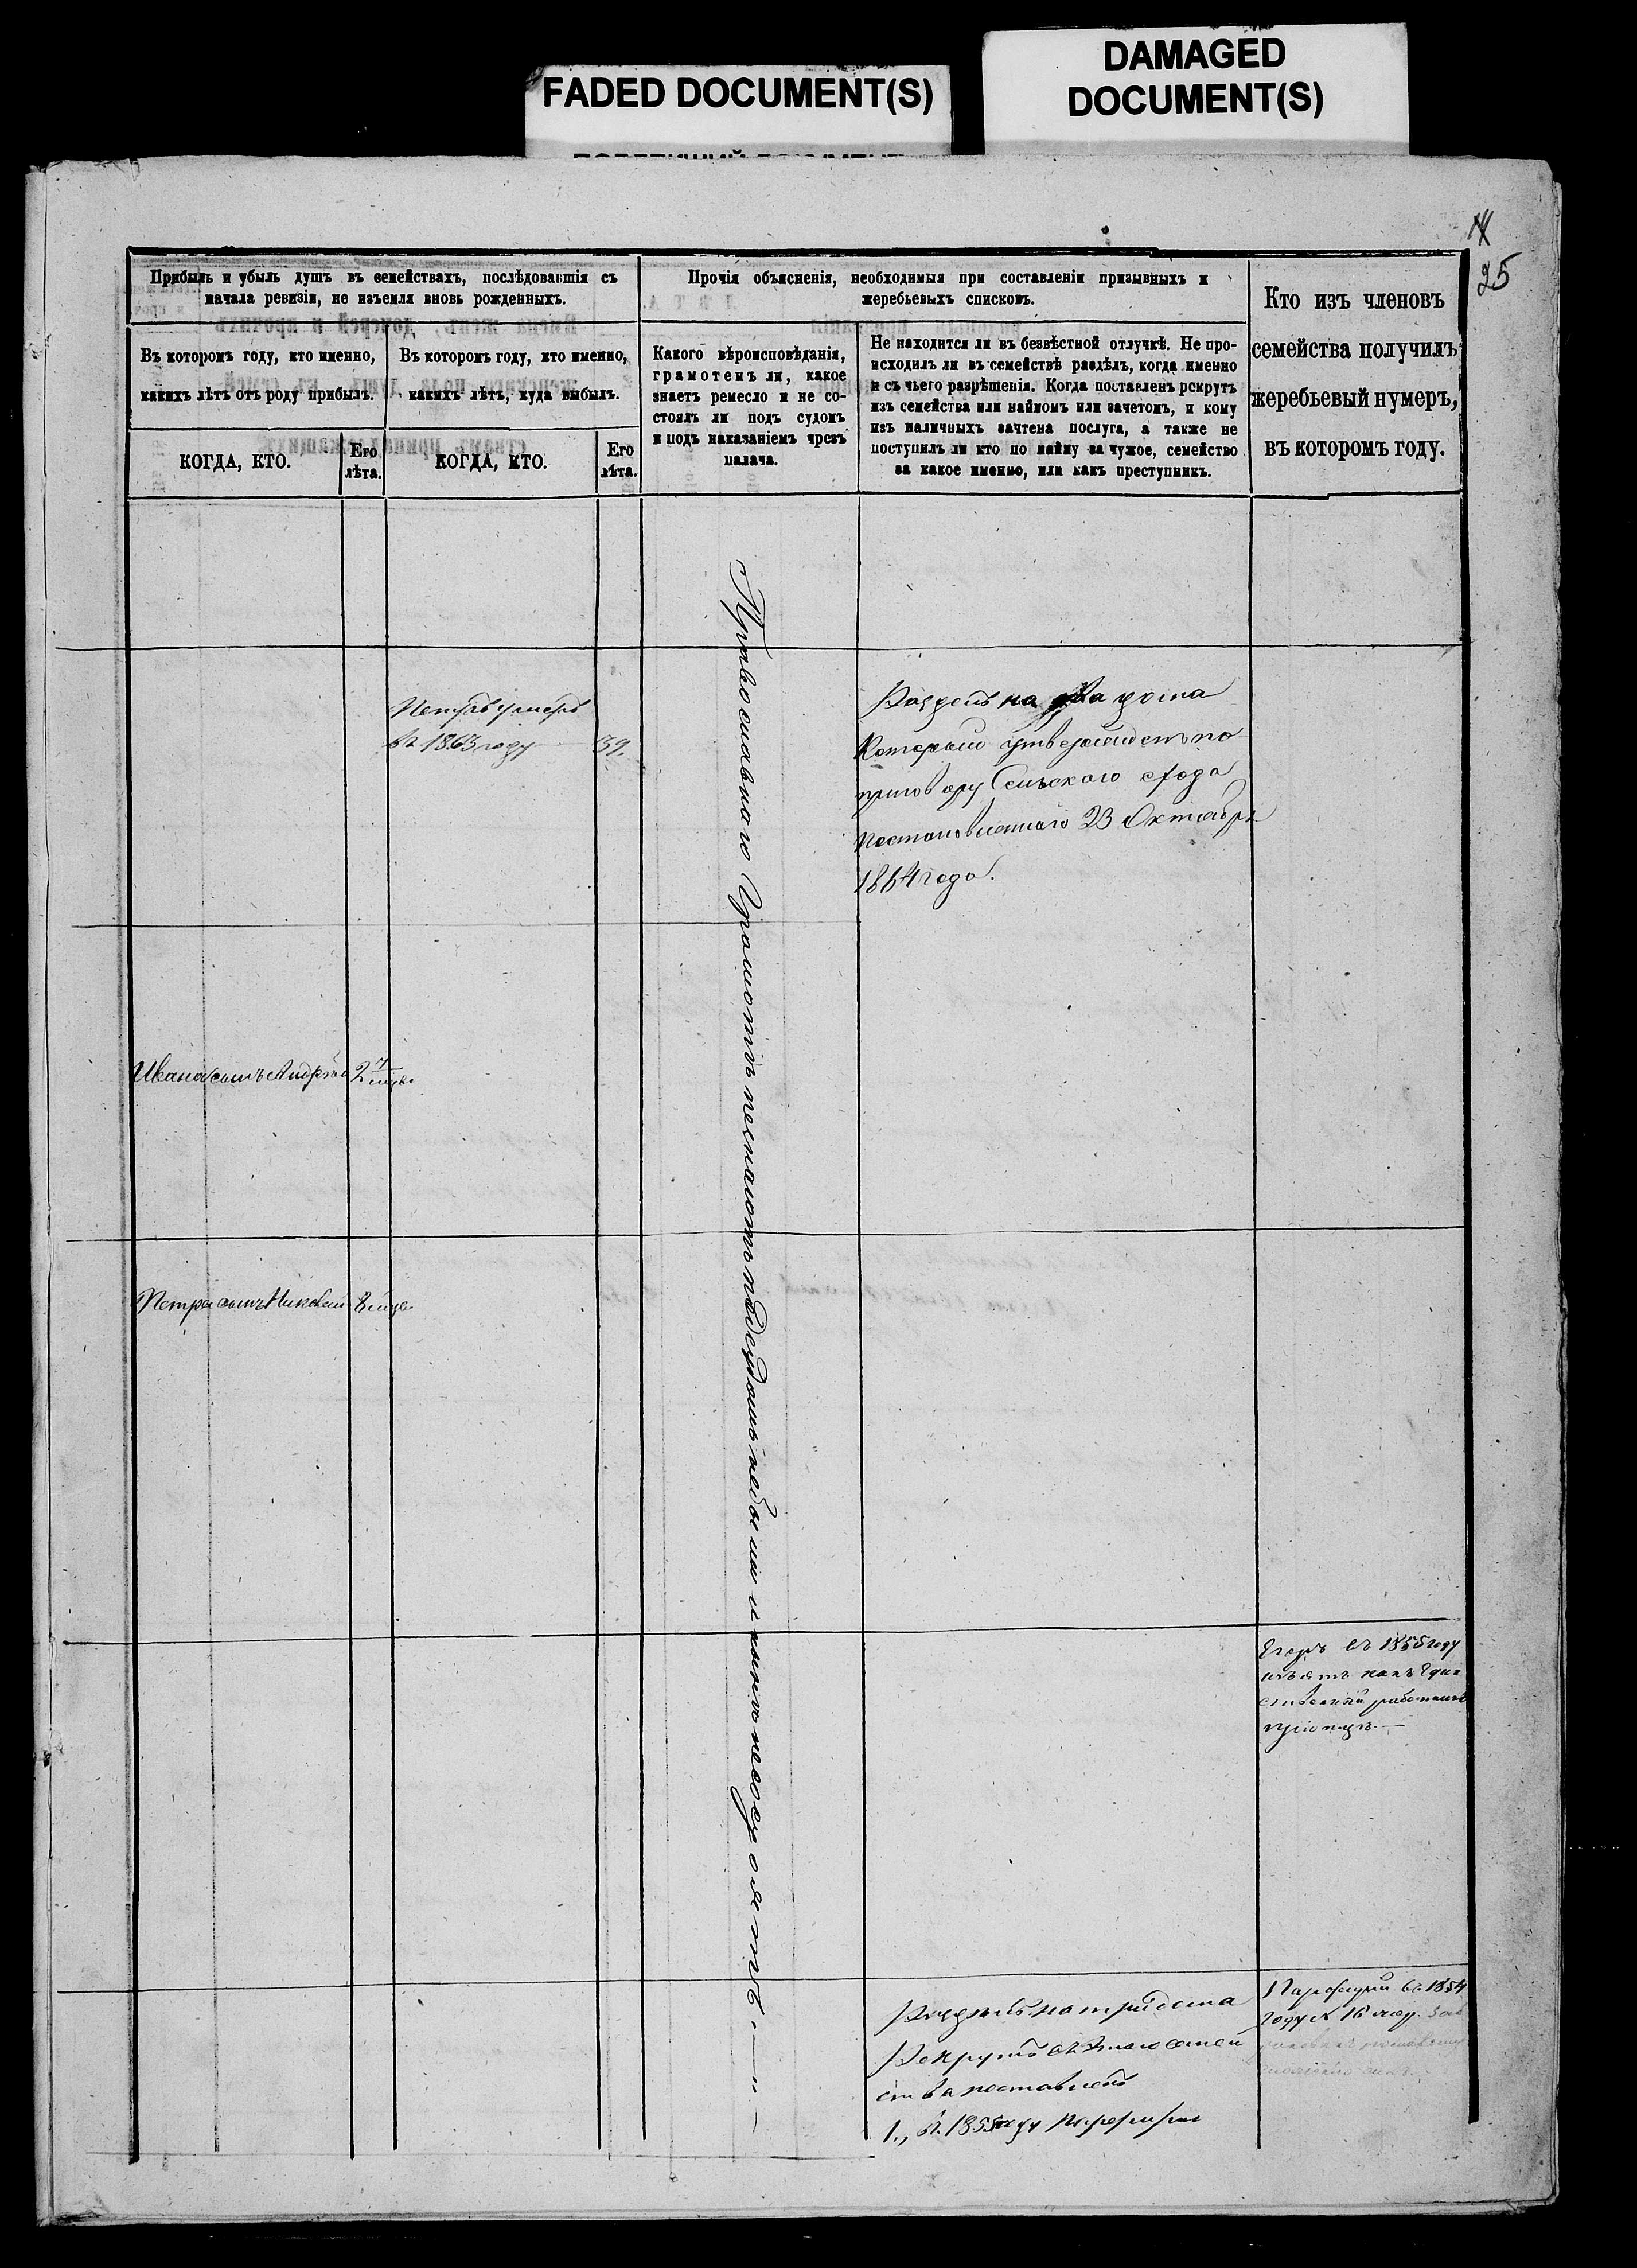 FADED DOCUMENT(S)
DAMAGED
DOCUMENT(S)
25
Прибыль и убыль душъ въ семействахъ, послѣдовавшія съ
начала ревизіи, не изъемля вновь рожденныхъ.
Прочія объясненія, необходимыя при составленіи призывныхъ и
жеребьевыхъ списковъ.
Кто изъ членовъ
семейства получилъ
жеребьевый нумеръ,
въ которомъ году.
Въ которомъ году, кто именно,
какихъ лѣтъ отъ роду прибылъ.
Въ которомъ году, кто именно,
какихъ лѣтъ, куда выбылъ.
Какого вѣроисповѣданія,
грамотенъ ли, какое
знаетъ ремесло и не со-
стоялъ ли подъ судомъ
и подъ наказаніемъ чрезъ
палача.
Не находится ли въ безвѣстной отлучкѣ. Не про-
исходилъ ли въ семействѣ раздѣлъ, когда именно
и съ чьего разрѣшенія. Когда поставленъ рекрутъ
изъ семейства или наймомъ или зачетомъ, и кому
изъ наличныхъ зачтена послуга, а также не
поступилъ ли кто по найму за чужое, семейство
за какое именно, или какъ преступникъ.
КОГДА, КТО.
Его
лѣта.
КОГДА, КТО.
Его
лѣта.
Петръ умеръ
въ 1863 году
39.
Раздѣлъ на два дома
Который утвержденъ по
приговору Сельскаго схода
постановленнаго 23 Октября
1864 года.
Православнаго Грамотѣ незнаютъ подсудомъ небыли и нынѣ несостоятъ.
Ивана сынъ Андрей 2
Петра сынъ Николай
Егоръ въ 1855 году
изъятъ какъ Един
ственный работникъ
при отцѣ.—
Раздѣлъ на три дома
Рекрутъ съ этаго семей
ства поставленъ
1., въ 1855 году
въ 1854
году